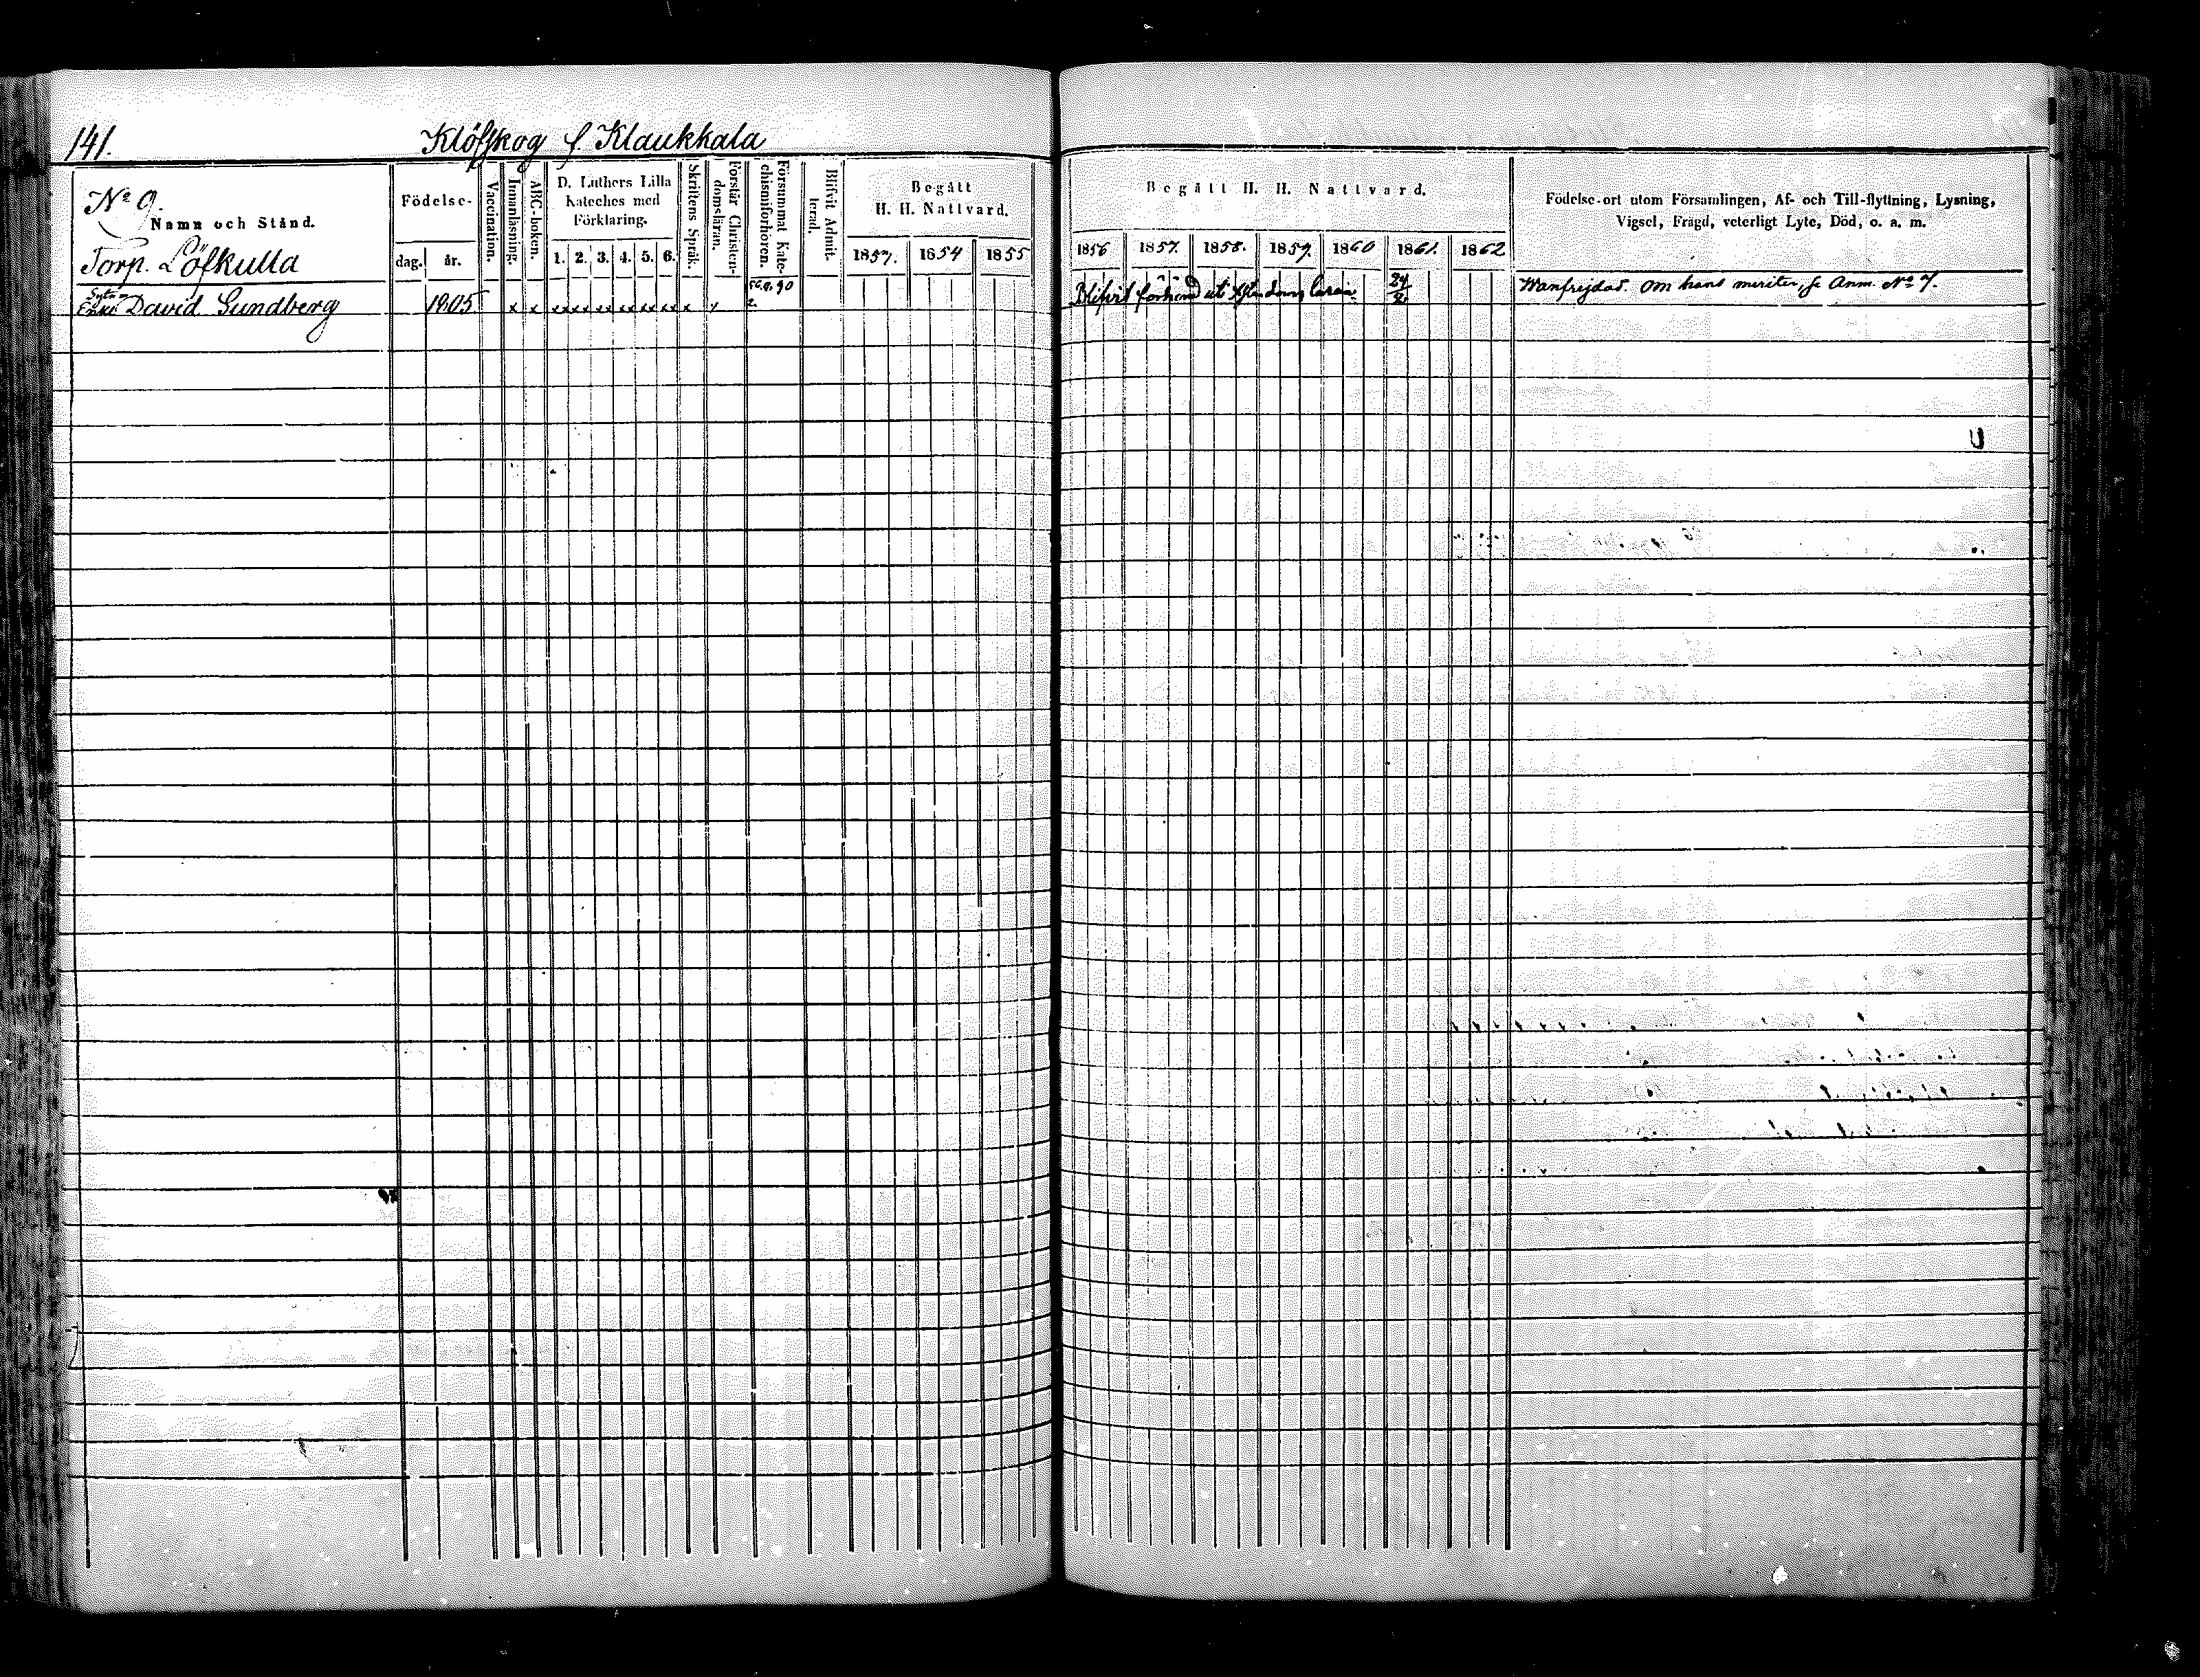 141. Klöfskog l. Klaukkala
No 9.
Namn och Stånd.
Torp. Löfkulla
Födelse-
dag. år.
Vaccination.
Innanläsning.
ABC-boken.
D. Luthers Lilla
Kateches med
Förklaring.
1. 2. 3. 4. 5. 6.
Skriftens Språk.
Förstår Christen-
domsläran.
Försummat Kate-
chismiförhören.
Blifvit Admit-
terad.
Begått
H. H. Nattvard.
1853. 1854 1855
Begått H. H. Nattvard.
1856 1857. 1858. 1859. 1860 1861. 1862
Födelse-ort utom Församlingen, Af- och Till-flyttning, Lysning,
Vigsel, Frägd, veterligt Lyte, Död, o. a. m.
Enkl. David Sundberg 1805 x x xx xx xx xx xx xx x
Blifvit förhörd uti 24 Wanfrejdad. Om hans meriter, se Anm. No 7.